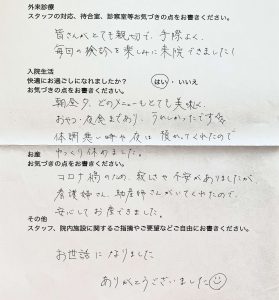 外来診療
スタッフの対応、待合室、診察室等お気づきの点をお書きください。
皆さんがとても親切で、手際よく、
毎回の検診を楽しみに来院できました！
入院生活
快適にお過ごしになれましたか？ はい・いいえ
お気づきの点をお書きください。
朝昼夕、どのメニューもとても美味しく
おやつ・夜食まであり、うれしかったです
体調悪い時や夜は預かってくれたので
ゆっくり休めました。
お産
お気づきの点をお書きください。
コロナ禍のため、寂しさや不安がありましたが
看護婦さん、助産師さんがいてくれたので、
安心してお産できました。
その他
スタッフ、院内施設に関するご指摘やご要望などご自由にお書きください。
お世話になりました
ありがとうございました